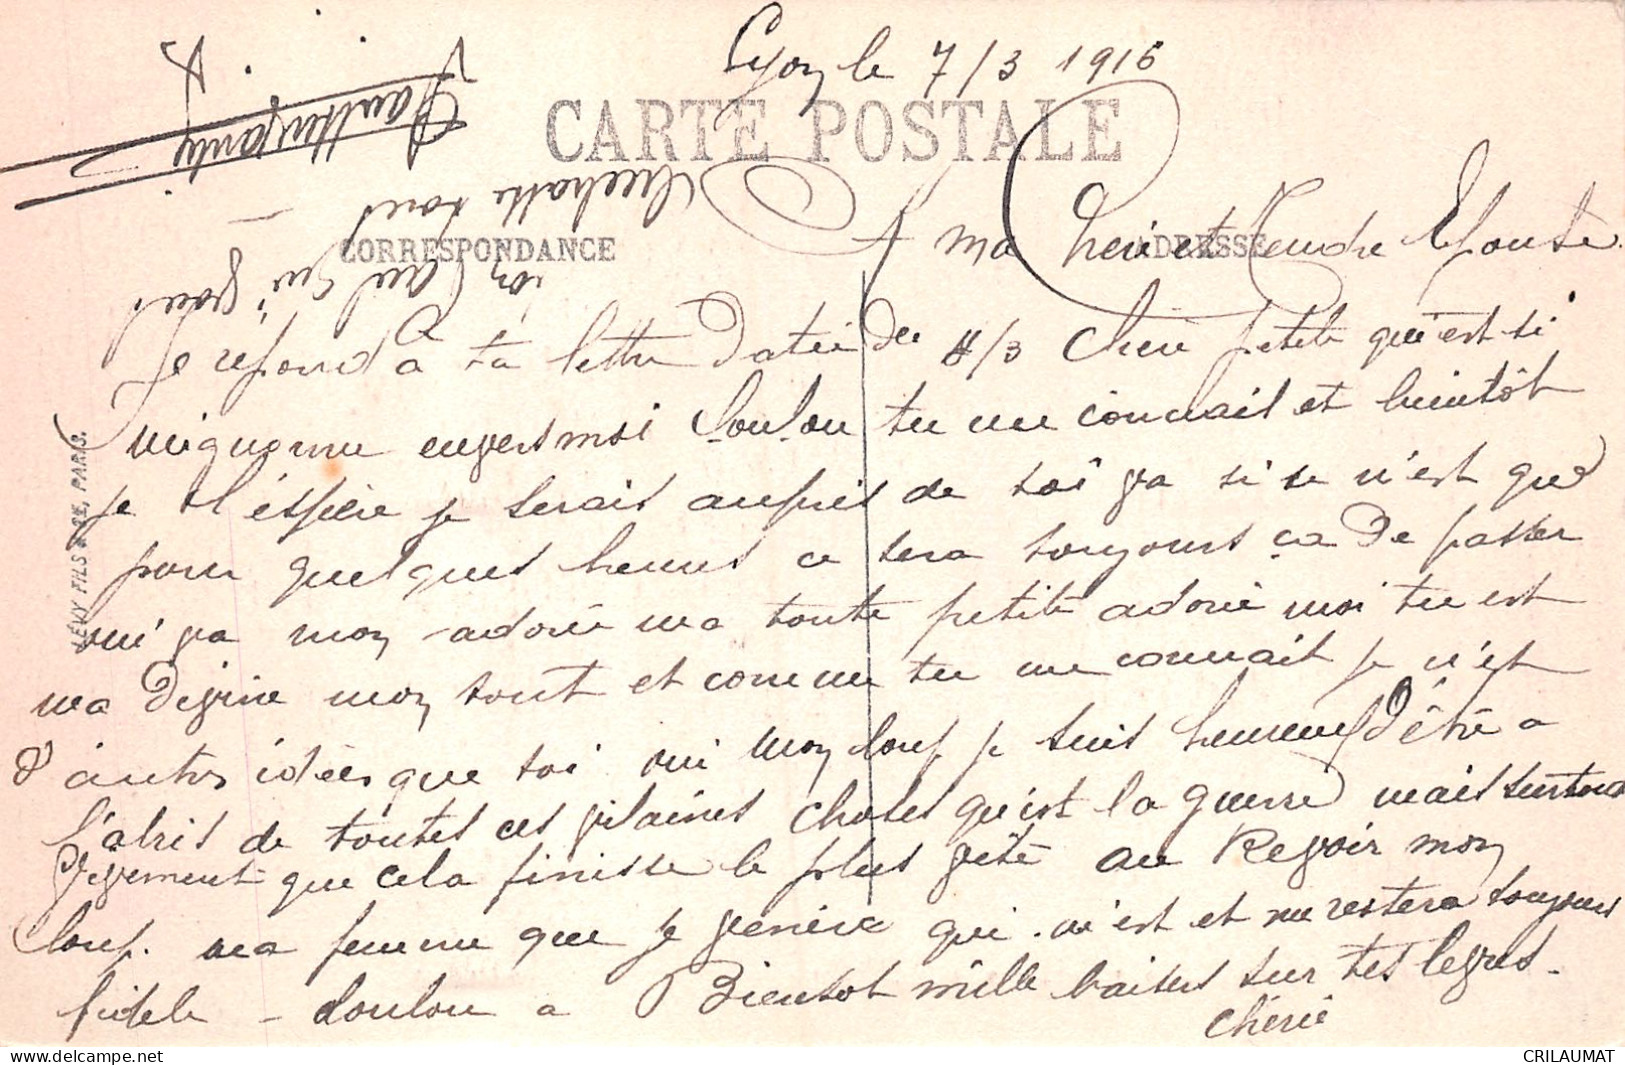 Lyon le 7/3 1916
CARTE POSTALE
CORRESPONDANCE
ADRESSE
A ma Cheri et Tendre Epouse
Je repond a ta lettre Datée du 4/3 Cheri petite qui est si
mignonne envers moi Loulou tu me connait et bientôt
je l'éspère je serais auprès de toi va si se n'est que
pour quelques heures ce sera toujours ça De passer
oui va mon adorée ma toute petite adorée moi tu est
ma Divine mon tout et comme tu me connait je n'est
d'autres idées que toi oui mon Loup je suis heureux D'être a
l'abris de toutes ces vilaines choses qu'est la guerre mais surtout
Vivement que cela finisse le plus vite au Revoir mon
Loup. ma femme que je vénére qui m'est et me restera toujours
fidele - Loulou a Bientot mille baisers sur tes levres
Chérie
ton Lou qui
LEVY FILS & CIE, PARIS.
CRILAUMAT